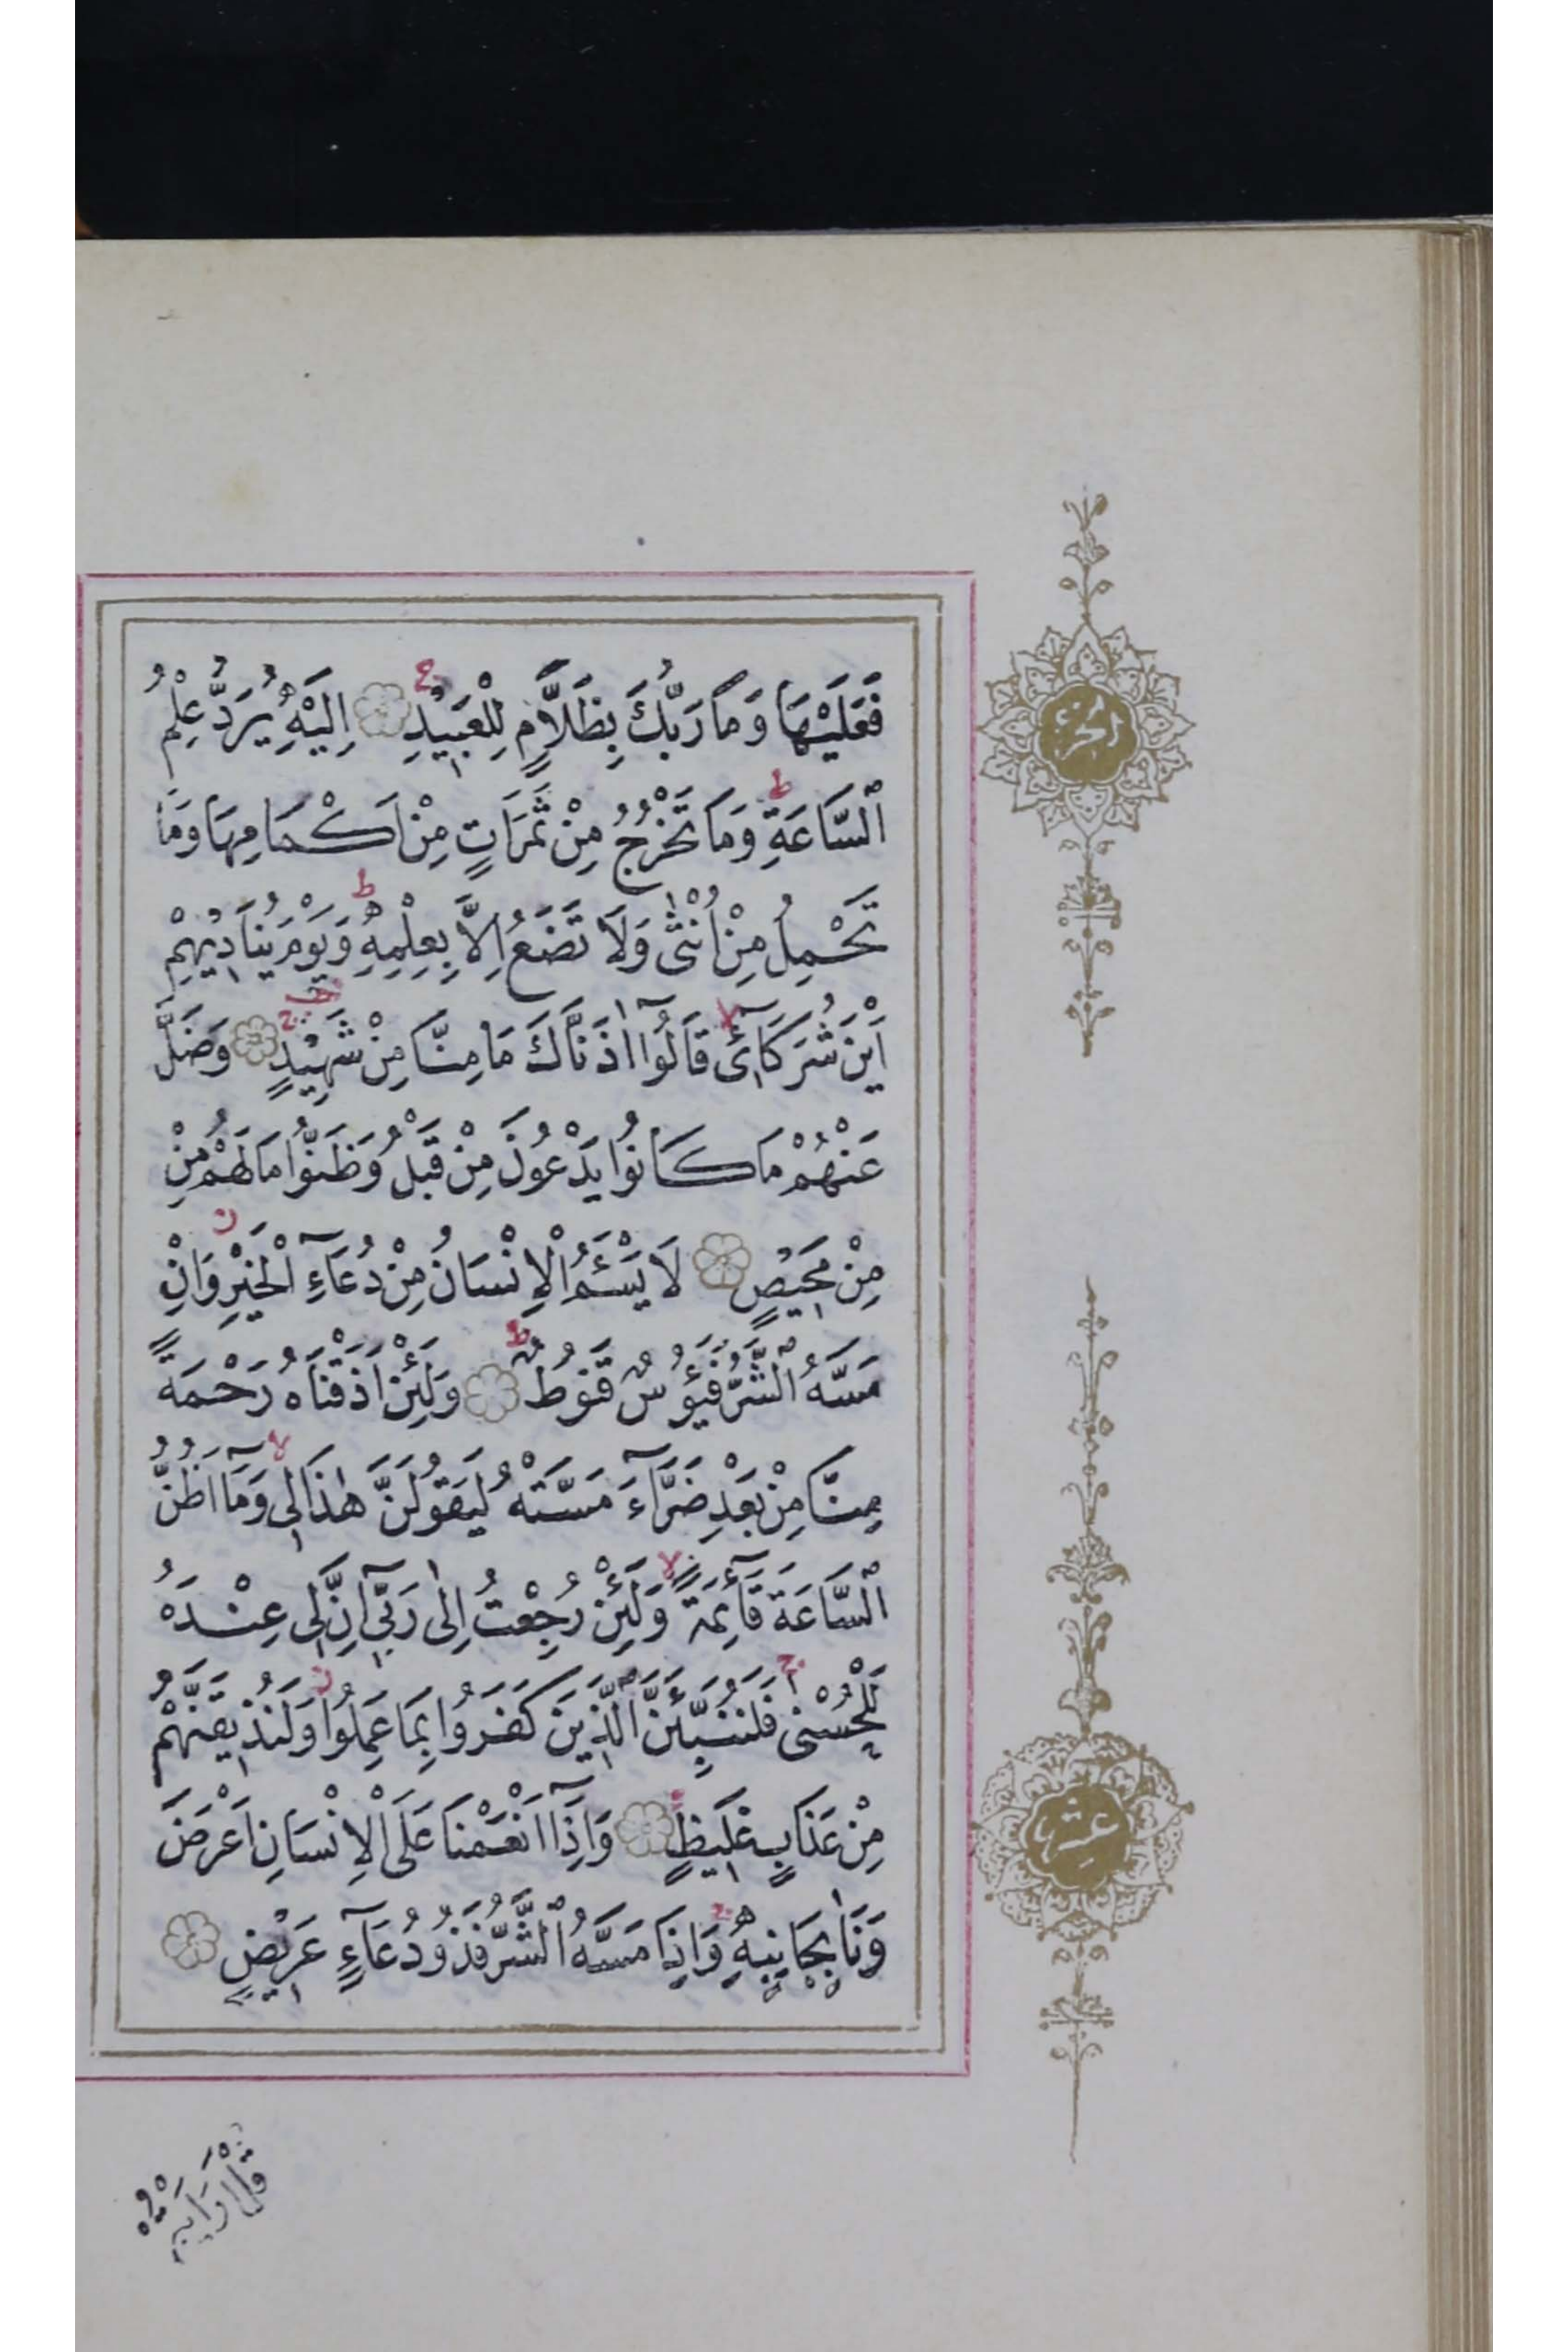 فَعَلَيْهَا وَمَا رَبُّكَ بِظَلَّامٍ لِلْعَبِيدِ اِلَيْهِ يُرَدُّ عِلْمُ
السَّاعَةِ وَمَا تَخْرُجُ مِنْ ثَمَرَاتٍ مِنْ اَكْمَامِهَا وَمَا
تَحْمِلُ مِنْ اُنْثٰى وَلَا تَضَعُ اِلَّا بِعِلْمِهِ وَيَوْمَ يُنَادِيهِمْ
اَيْنَ شُرَكَآئِى قَالُوٓا اٰذَنَّاكَ مَا مِنَّا مِنْ شَهِيدٍ وَضَلَّ
عَنْهُمْ مَا كَانُوا يَدْعُونَ مِنْ قَبْلُ وَظَنُّوا مَا لَهُمْ مِنْ
مِنْ مَحِيصٍ لَا يَسْئَمُ الْاِنْسَانُ مِنْ دُعَآءِ الْخَيْرِ وَاِنْ
مَسَّهُ الشَّرُّ فَيَؤُسٌ قَنُوطٌ وَلَئِنْ اَذَقْنَاهُ رَحْمَةً
مِنَّا مِنْ بَعْدِ ضَرَّآءَ مَسَّتْهُ لَيَقُولَنَّ هٰذَا لِى وَمَآ اَظُنُّ
السَّاعَةَ قَآئِمَةً وَلَئِنْ رُجِعْتُ اِلٰى رَبِّىٓ اِنَّ لِى عِنْدَهُ
لَلْحُسْنٰى فَلَنُنَبِّئَنَّ الَّذِينَ كَفَرُوا بِمَا عَمِلُوا وَلَنُذِيقَنَّهُمْ
مِنْ عَذَابٍ غَلِيظٍ وَاِذَآ اَنْعَمْنَا عَلَى الْاِنْسَانِ اَعْرَضَ
وَنَاٰ بِجَانِبِهِ وَاِذَا مَسَّهُ الشَّرُّ فَذُو دُعَآءٍ عَرِيضٍ
قُلْ اَرَاَيْتُمْ